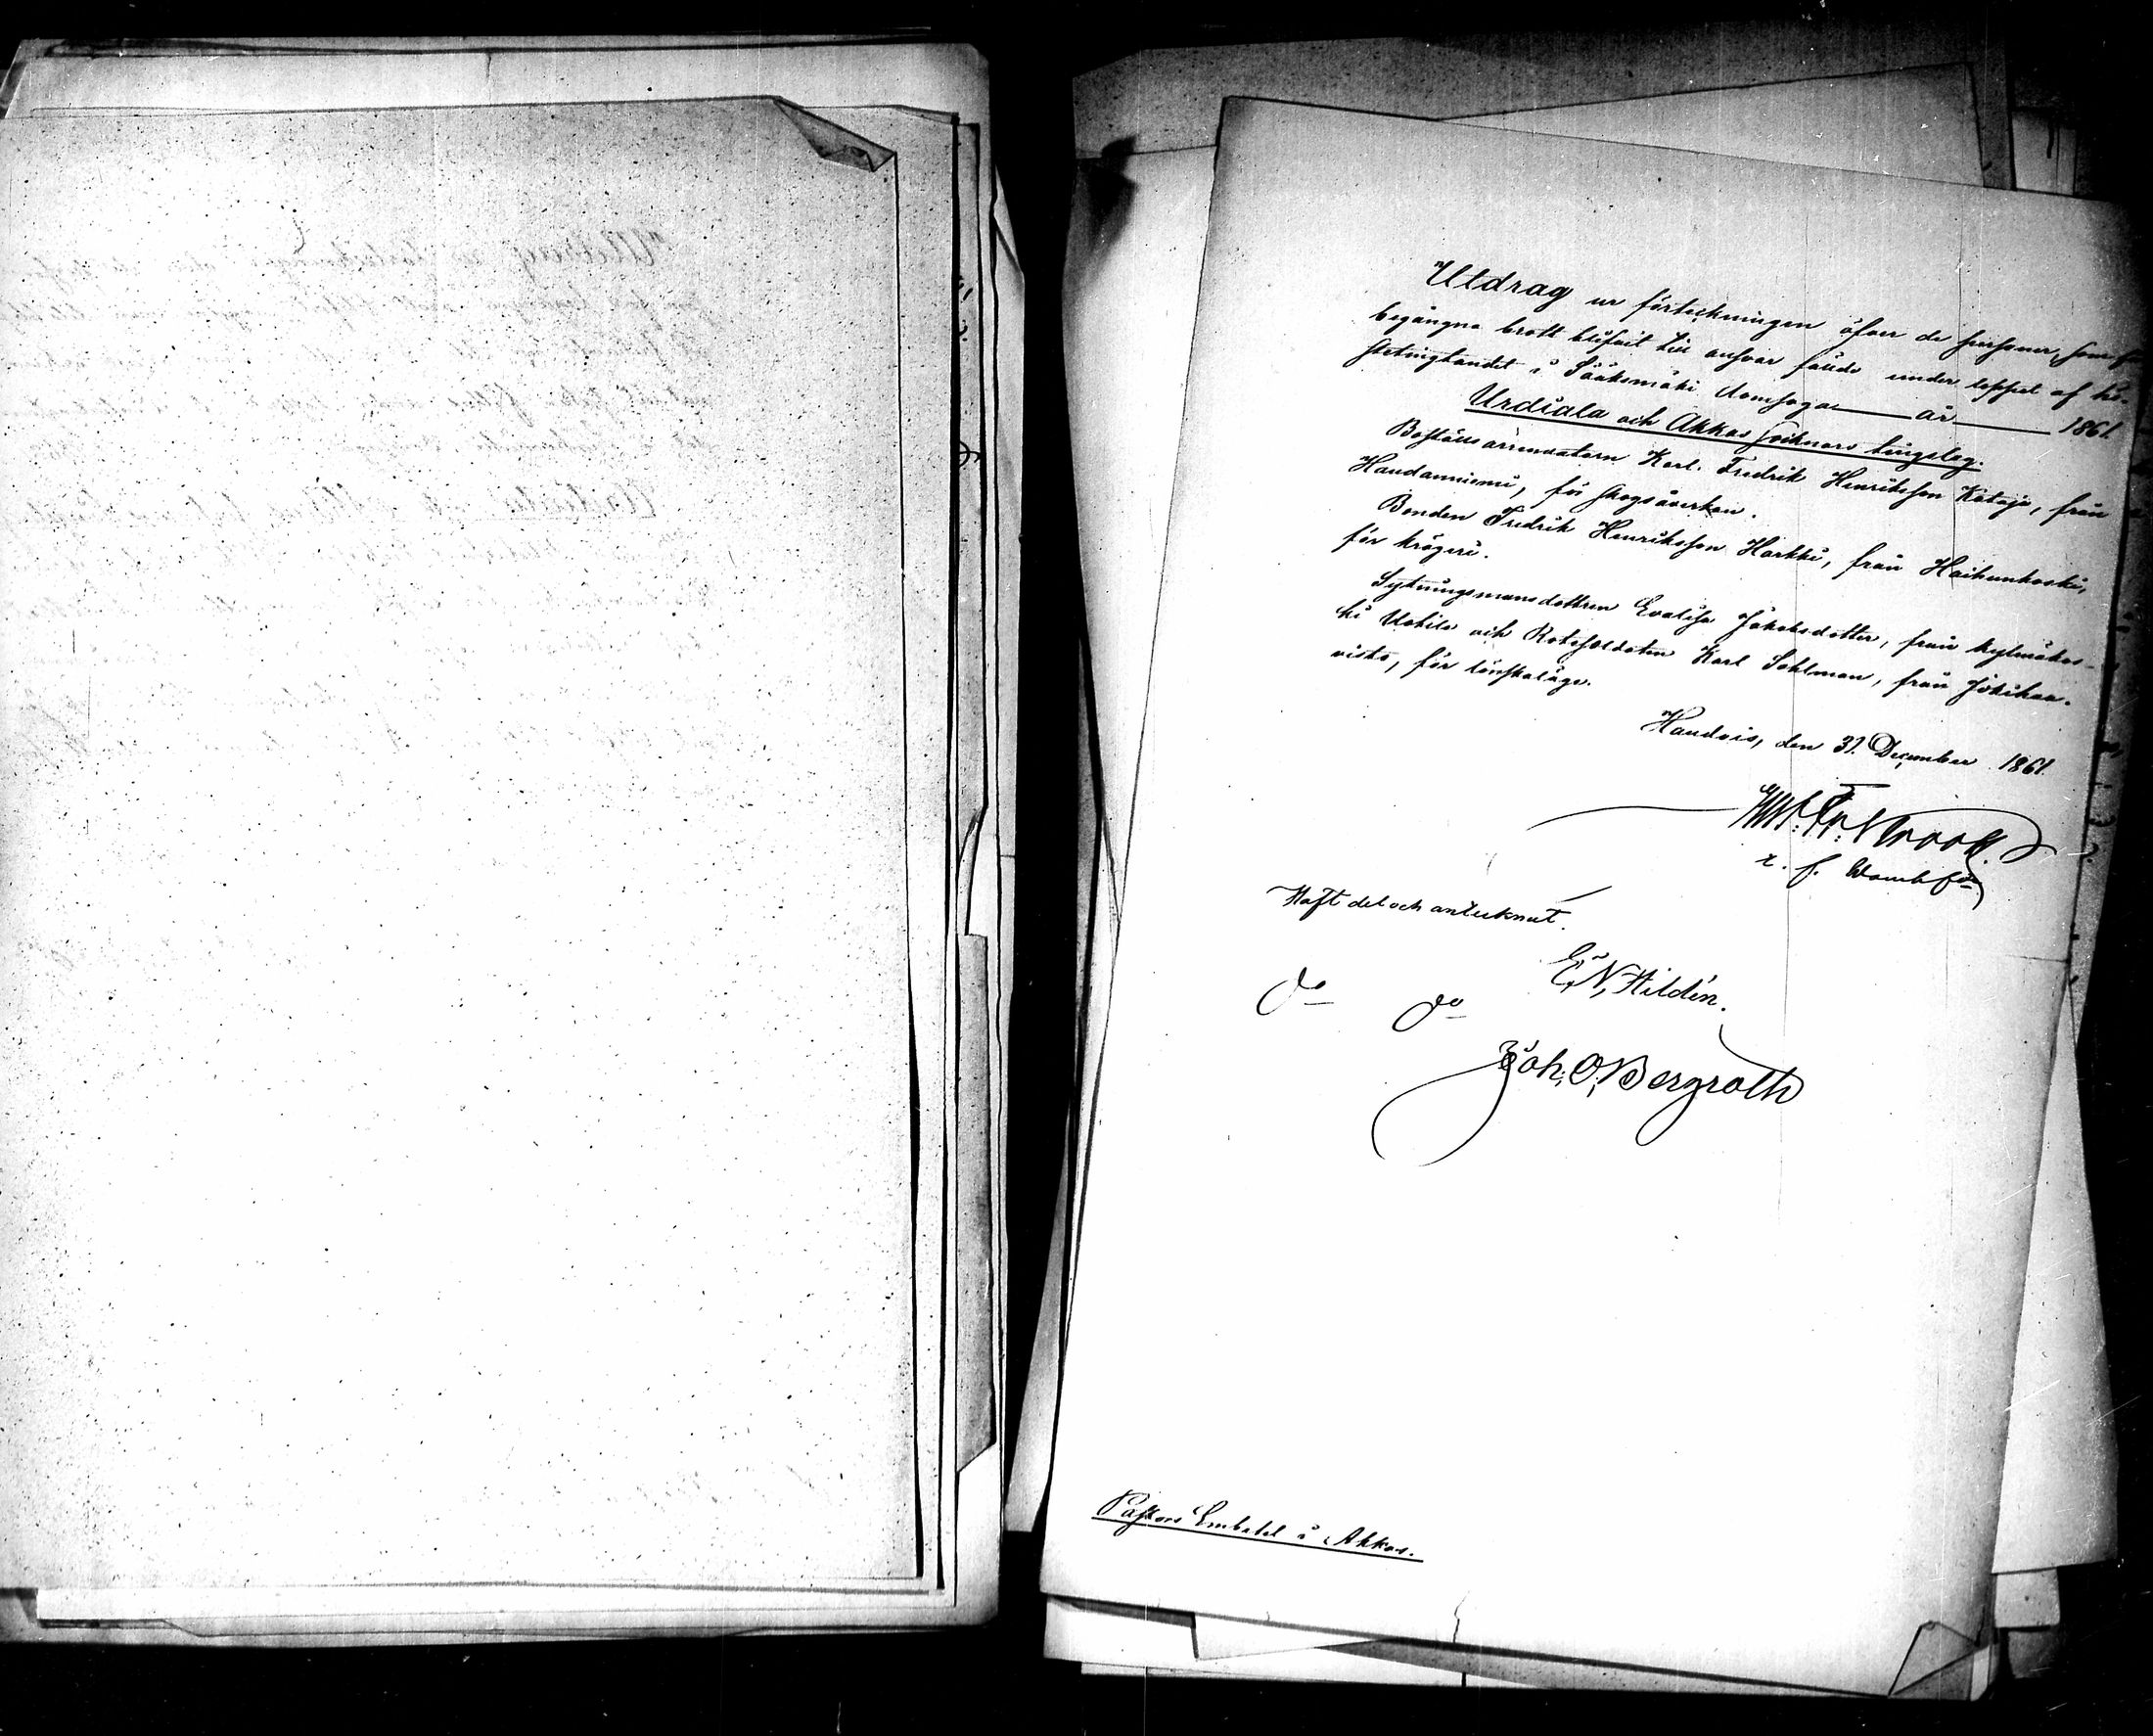 Utdrag ur förteckningen öfver de personer, som för
begångna brott blifvit till ansvar fälde under loppet af hö-
steting landet i Sääksmäki domsaga — år — 1861.
Urdiala och Akkas socknars tingslag.
Boställsarrendatorn Karl Fredrik Henriksson Kataja, från
Haudanniemi, för skogsåverkan.
Bonden Fredrik Henriksson Harkki, från Haihunkoski,
för krögeri.
Sytningsmansdottren Evalisa Jakobsdotter, från Kylmäkos-
ki Uotila och Rotesoldaten Karl Sohlman, från Jokihaa-
visto, för lönskaläge.
Handois, den 31 December 1861.
t. f. Domhfde
Haft del och antecknat.
E. N. Hildén.
do do
Joh. O. Bergroth
Pastors Embetet i Akkas.